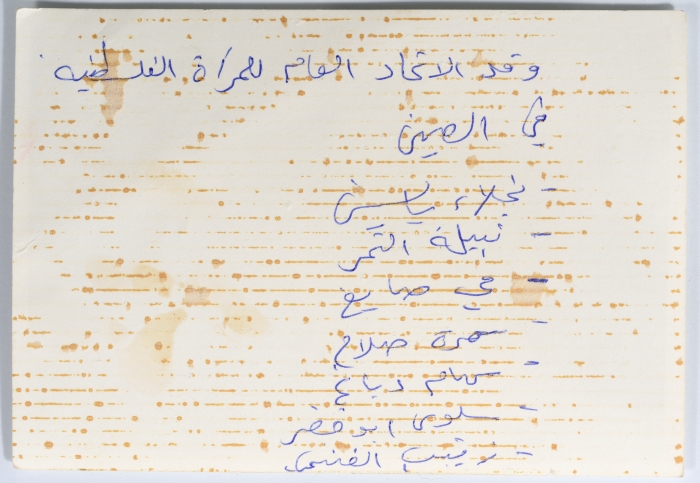 وفد الاتحاد العام للمرأة الفلسطينيه
في الصين
- نجلاء ياسين
- نبيلة النمر
- مي صايغ
- سميرة صلاح
- سهام
- سلوى ابو خضر
- زينب الغنيمي